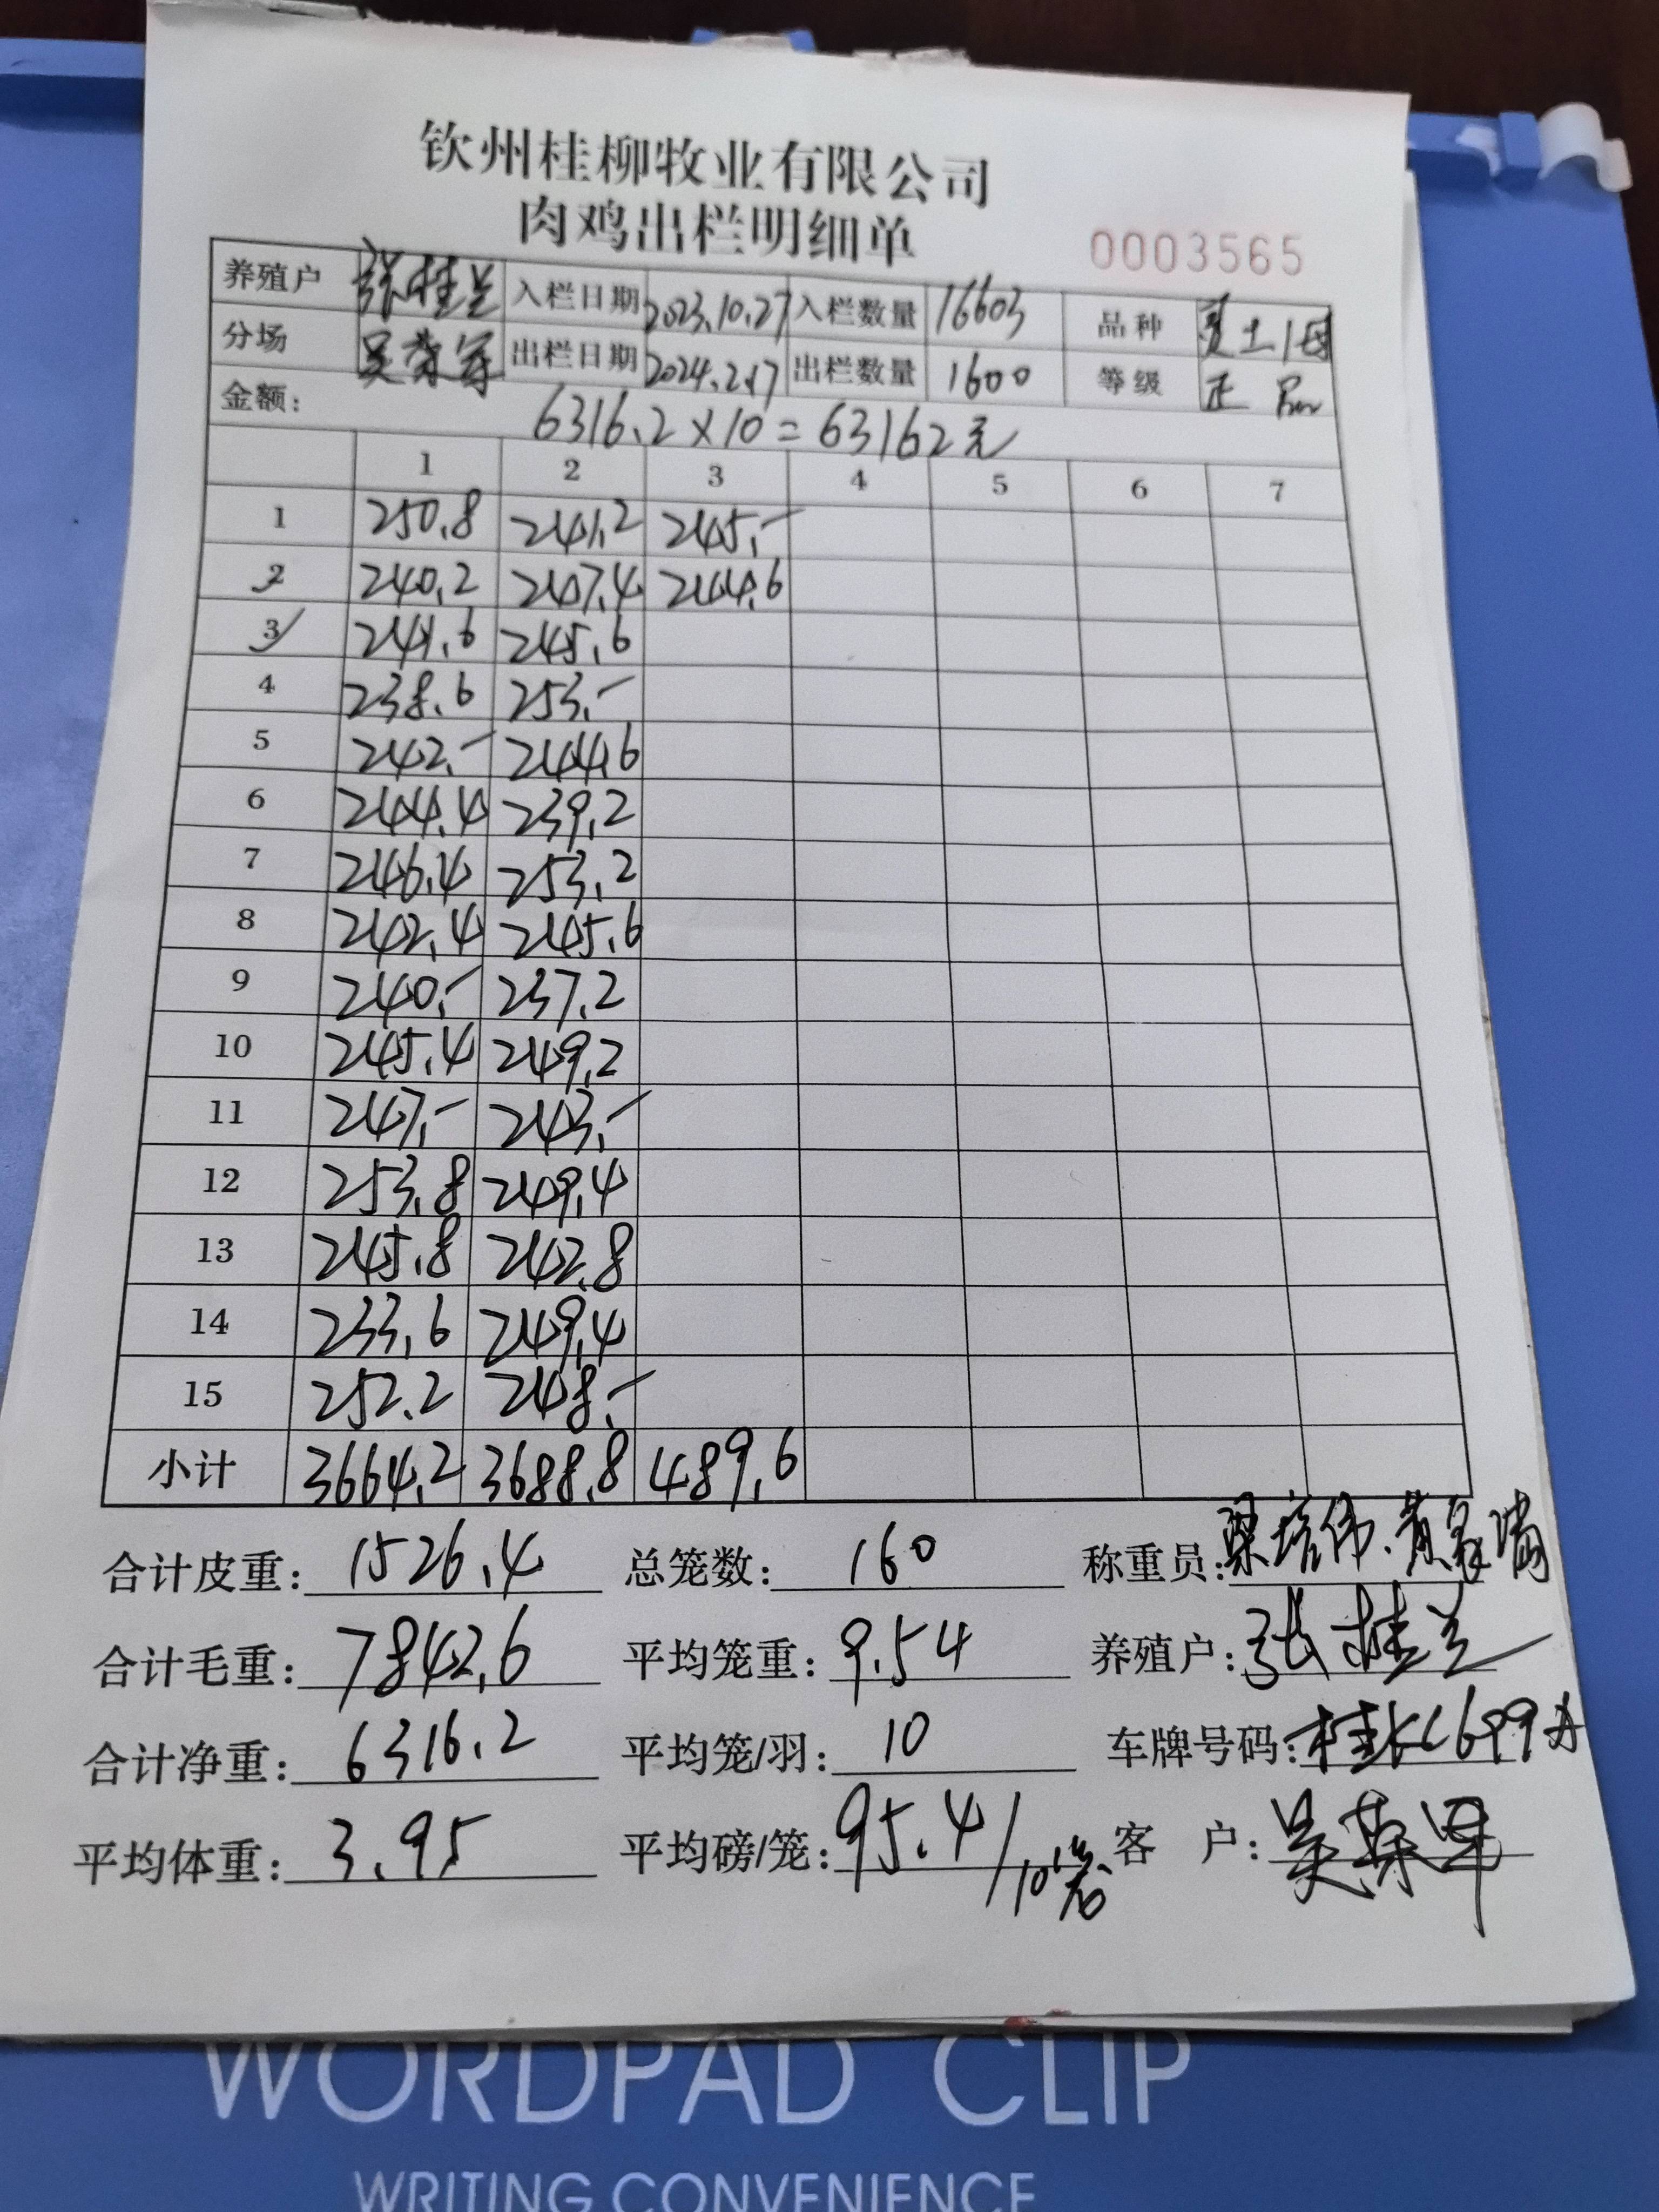 钦州桂柳牧业有限公司
肉鸡出栏明细单
0003565
养殖户 张桂兰 入栏日期 2023.10.27 入栏数量 16603 品种 土1母
分场 吴 出栏日期 2024.2.17 出栏数量 1600 等级 正
金额: 6316.2×10=63162元
1 2 3 4 5 6 7
1 250.8 241.2 245.-
2 240.2 247.4 244.6
3 241.6 245.6
4 238.6 253.-
5 242.- 244.6
6 244.4 239.2
7 246.4 253.2
8 242.4 245.6
9 240.- 237.2
10 245.4 249.2
11 247.- 243.-
12 253.8 249.4
13 245.8 242.8
14 233.6 249.4
15 252.2 248.-
小计 3664.2 3688.8 489.6
合计皮重: 1526.4 总笼数: 160 称重员: 梁培伟.黄
合计毛重: 7842.6 平均笼重: 9.54 养殖户: 张桂兰
合计净重: 6316.2 平均笼/羽: 10 车牌号码: 桂KC699
平均体重: 3.95 平均磅/笼: 95.4/10 客 户: 吴
WORDPAD CLIP
WRITING CONVENIENCE